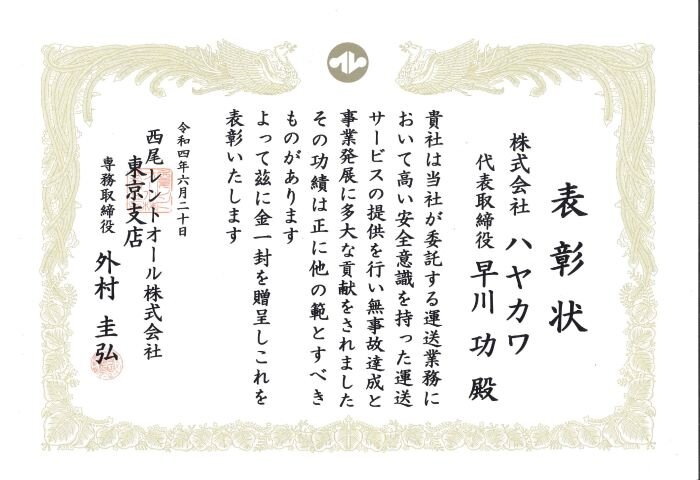 表彰状
株式会社 ハヤカワ
代表取締役 早川 功 殿
貴社は当社が委託する運送業務に
おいて高い安全意識を持った運送
サービスの提供を行い無事故達成と
事業発展に多大な貢献をされました
その功績は正に他の範とすべき
ものがあります
よって茲に金一封を贈呈しこれを
表彰いたします
令和四年六月二十日
西尾レントオール株式会社
東京支店
専務取締役 外村 圭弘